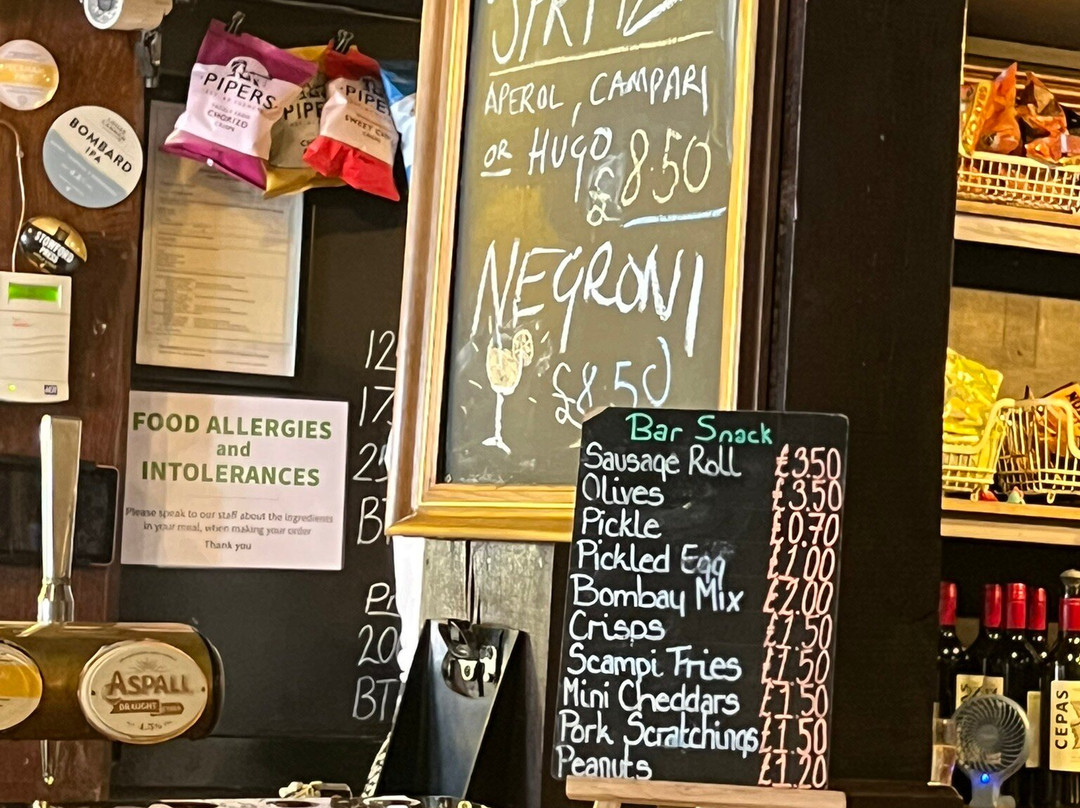 PIPERS
CHORIZO
CRISPS
PIPERS
PIPE
SWEET CH
BOMBARD
IPA
STOWFORD
PRESS
FOOD ALLERGIES
and
INTOLERANCES
Please speak to our staff about the ingredients
in your meal, when making your order
Thank you
12
17
25
20
ASPALL
DRAUGHT
4.5%
SPRITZ
APEROL, CAMPARI
OR HUGO
£8.50
NEGRONI
£8.50
Bar Snack
Sausage Roll £3.50
Olives £3.50
Pickle £0.70
Pickled Egg £1.00
Bombay Mix £2.00
Crisps £1.50
Scampi Fries £1.50
Mini Cheddars £1.50
Pork Scratchings £1.50
Peanuts £1.20
CEPAS